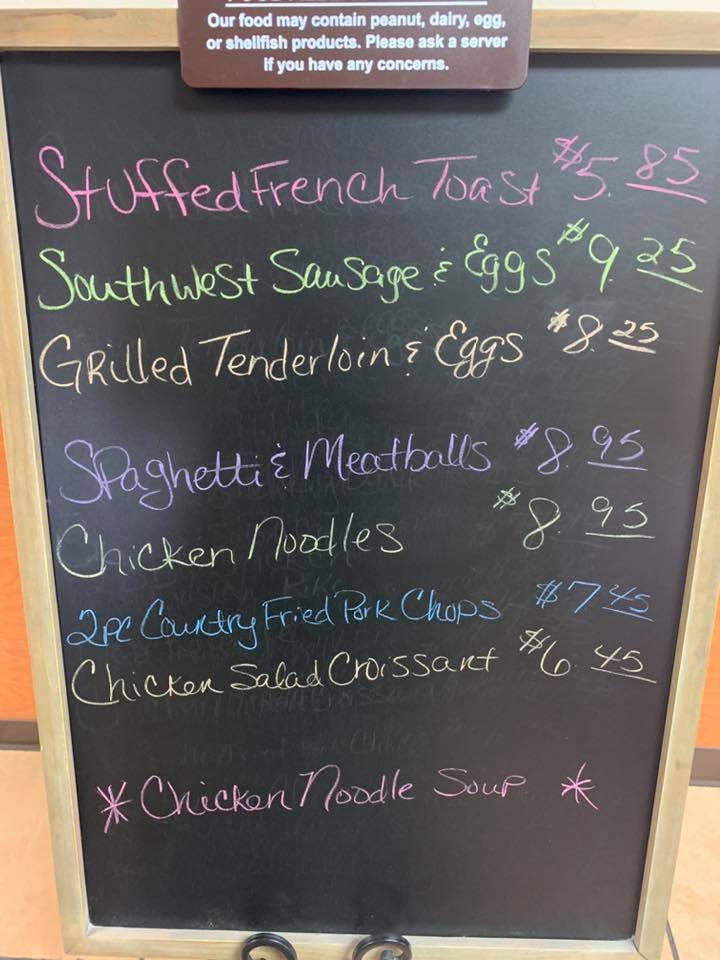 Our food may contain peanut, dairy, egg,
or shellfish products. Please ask a server
if you have any concerns.
Stuffed French Toast $5.85
Southwest Sausage & Eggs $9.25
Grilled Tenderloin & Eggs $8.25
Spaghetti & Meatballs $8.95
Chicken Noodles $8.95
2pc Country Fried Pork Chops $7.45
Chicken Salad Croissant $6.45
* Chicken Noodle Soup *